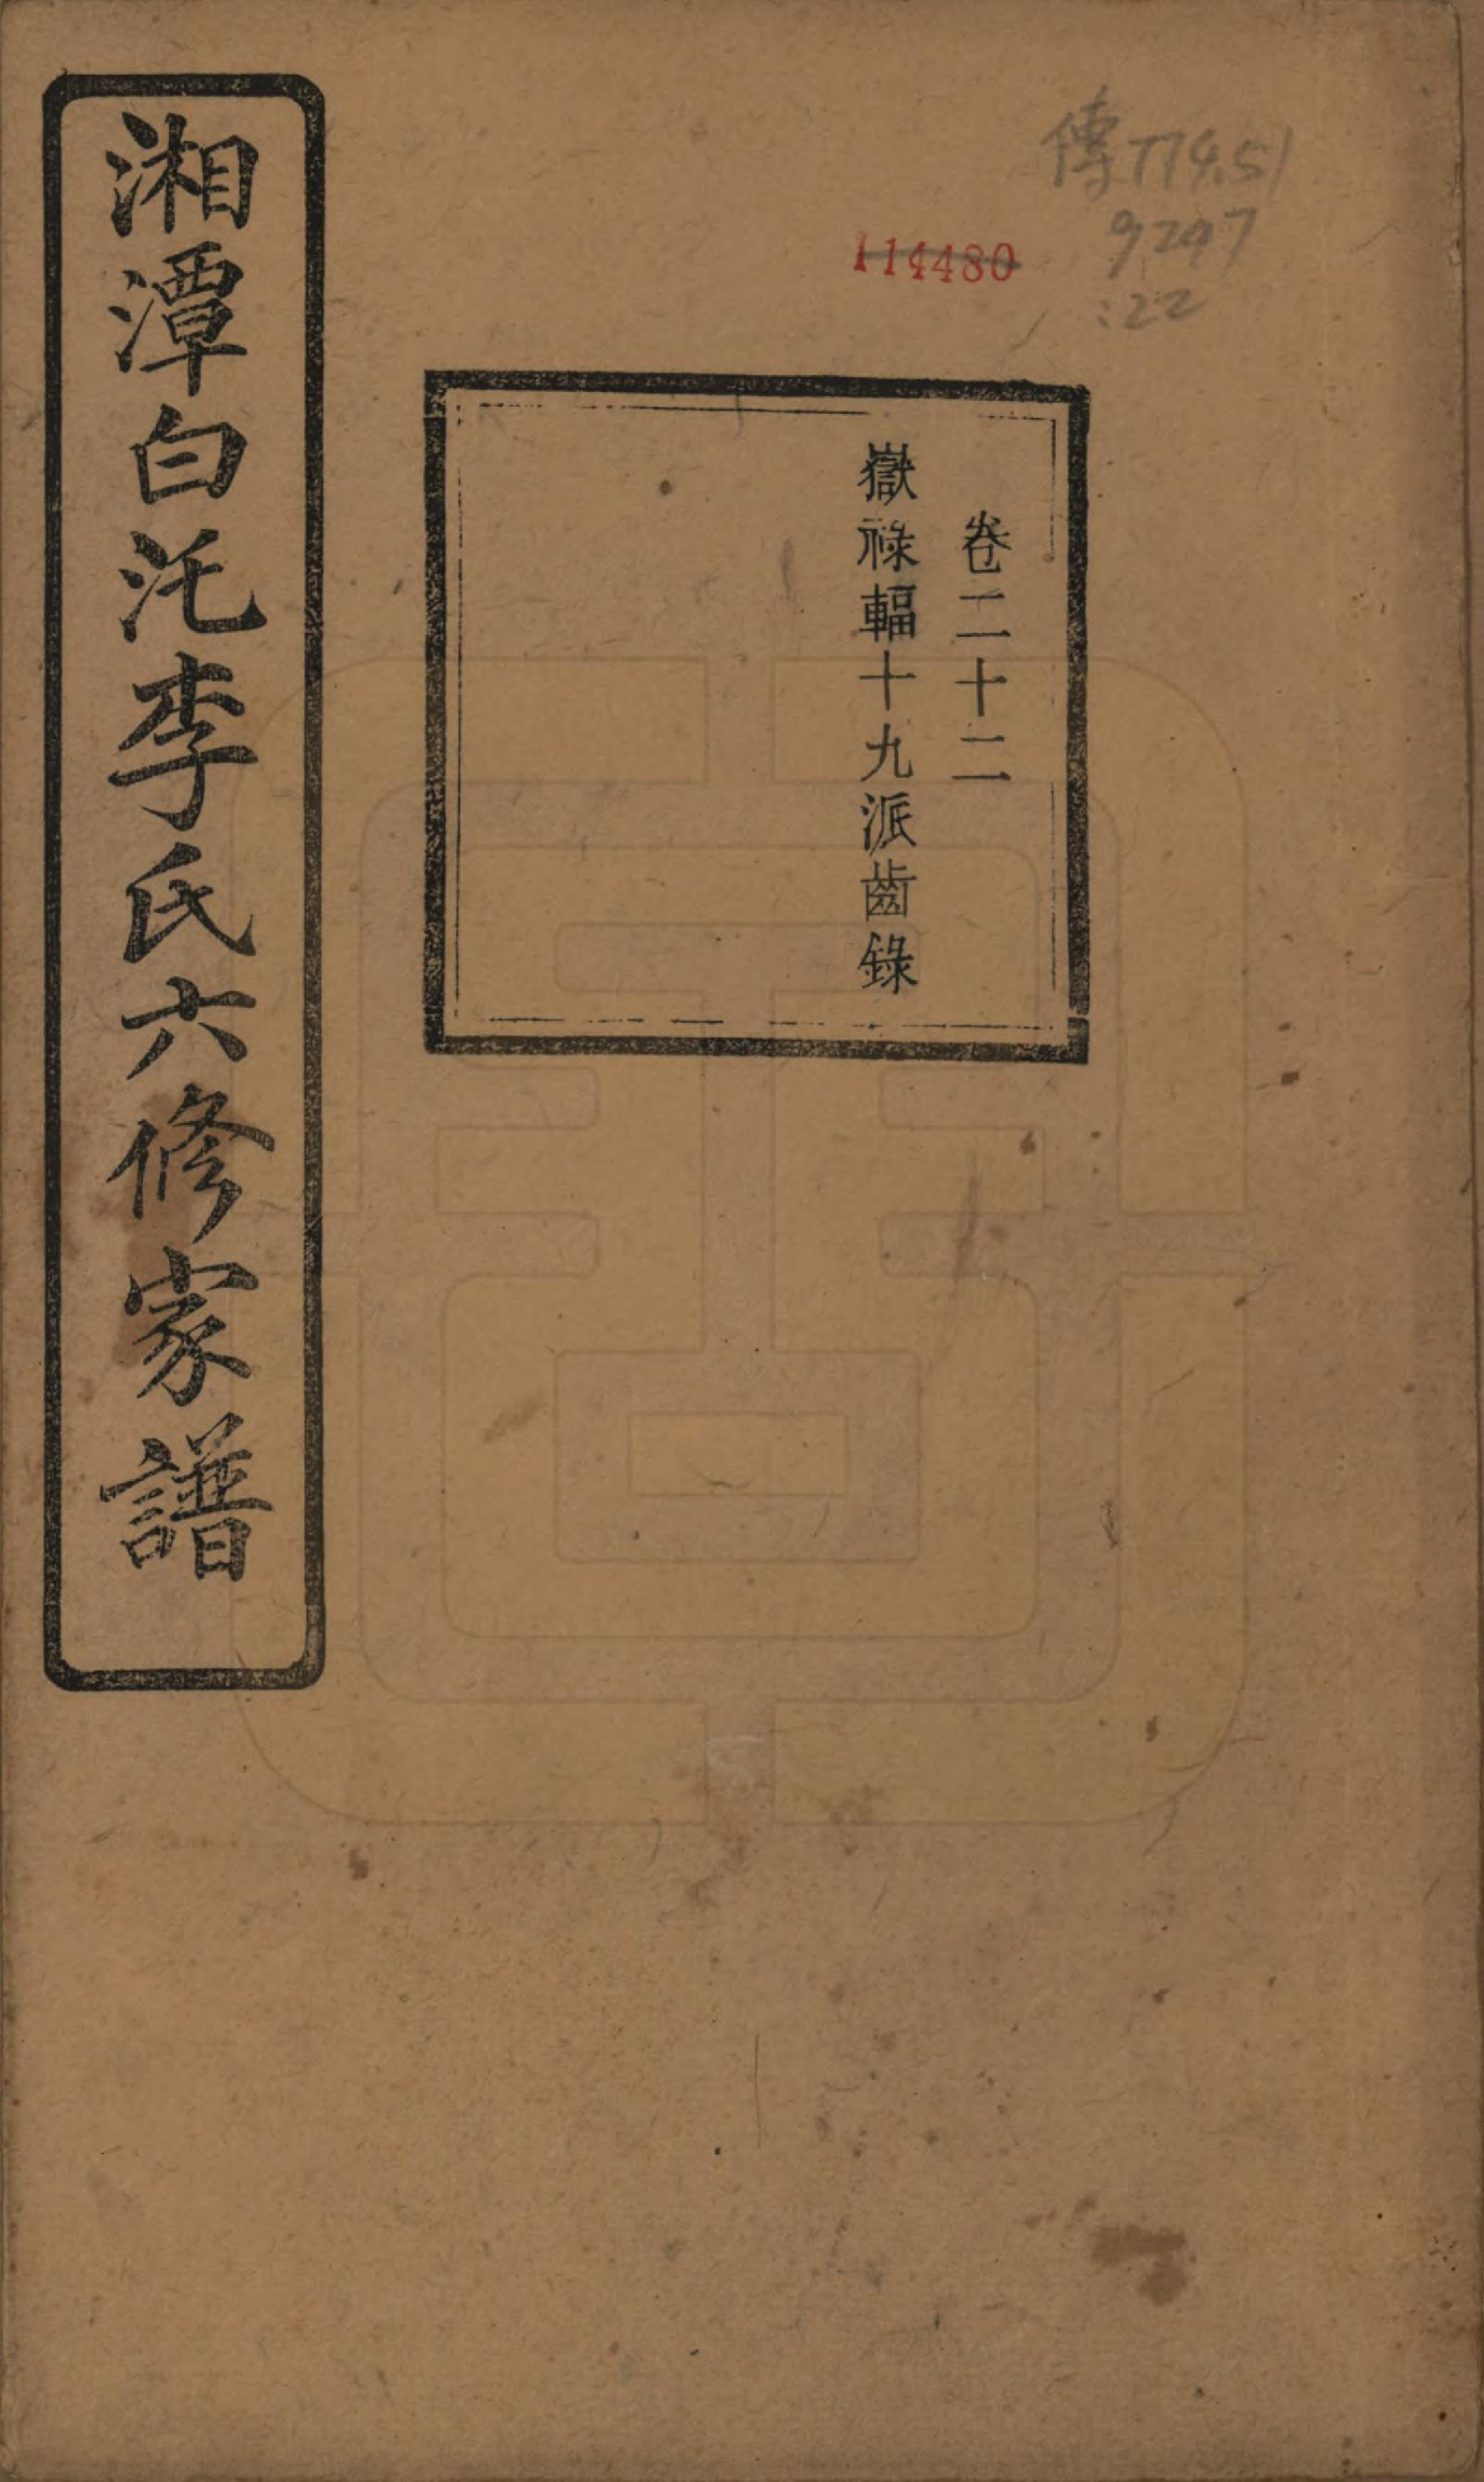 傳774.51
9247
:22
114480
卷二十二
嶽祿輻十九派齒錄
湘潭白汑李氏六修家譜